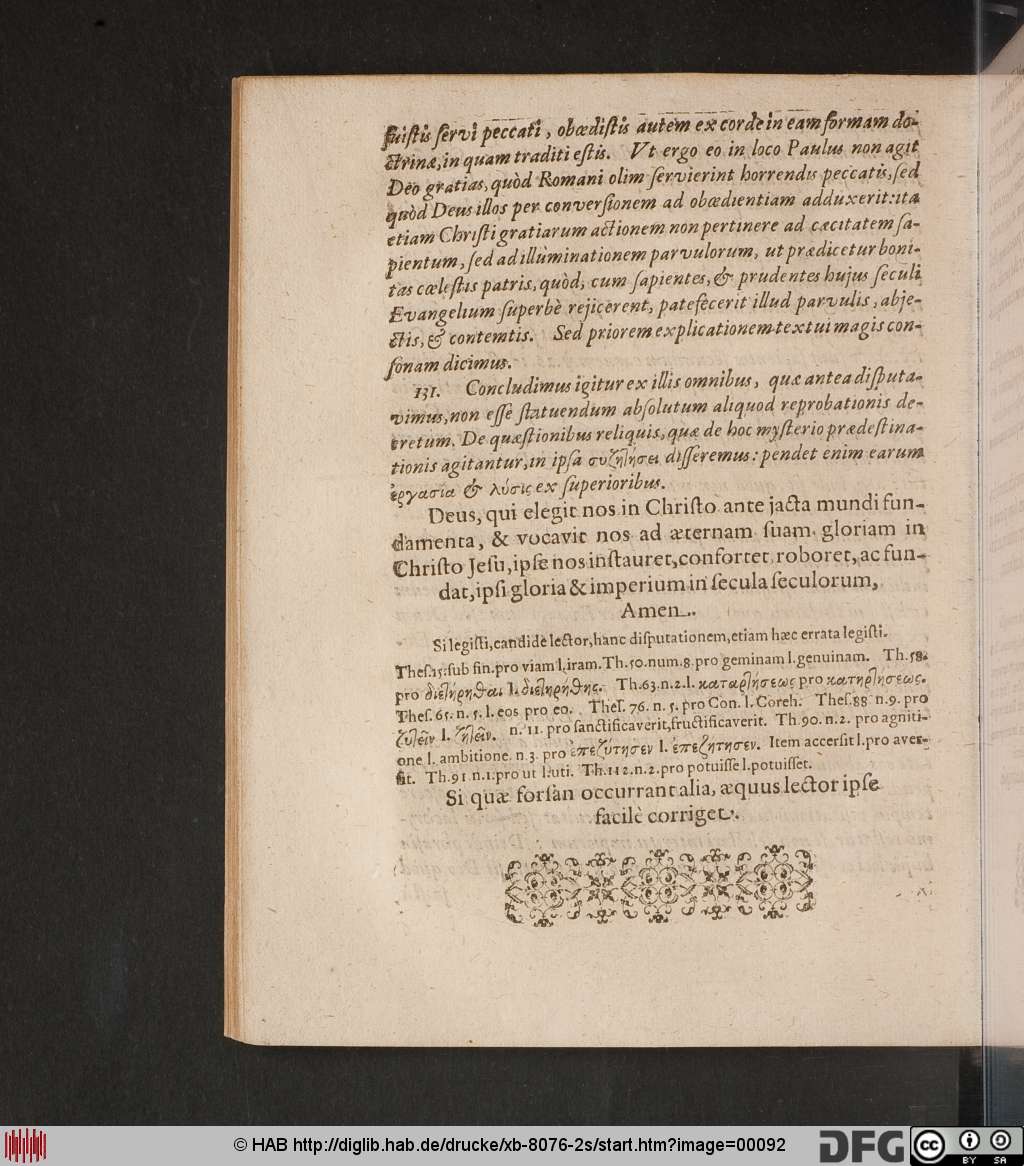 fuistis servi peccati, obœdistis autem ex corde in eam formam do-
ctrinæ, in quam traditi estis. Vt ergo eo in loco Paulus non agit
Deo gratias, quòd Romani olim servierint horrendis peccatis, sed
quòd Deus illos per conversionem ad obœdientiam adduxerit: ita
etiam Christi gratiarum actionem non pertinere ad cæcitatem sa-
pientum, sed ad illuminationem parvulorum, ut prædicetur boni-
tas cœlestis patris, quòd, cum sapientes, & prudentes hujus seculi
Evangelium superbè rejicerent, patefecerit illud parvulis, abje-
ctis, & contemtis. Sed priorem explicationem textui magis con-
sonam dicimus.
131. Concludimus igitur ex illis omnibus, quæ antea disputa-
vimus, non esse statuendum absolutum aliquod reprobationis de-
cretum. De quæstionibus reliquis, quæ de hoc mysterio prædestina-
tionis agitantur, in ipsa συζητήσει disseremus: pendet enim earum
ἐργασία & λύσις ex superioribus.
Deus, qui elegit nos in Christo ante jacta mundi fun-
damenta, & vocavit nos ad æternam suam gloriam in
Christo Jesu, ipse nos instauret, confortet, roboret, ac fun-
dat, ipsi gloria & imperium in secula seculorum,
Amen.
Si legisti, candide lector, hanc disputationem, etiam hæc errata legisti.
Thes. 15. sub fin. pro viam l. iram. Th. 50. num. 8. pro geminam l. genuinam. Th. 58.
pro διετήρηθαι l. διετηρήθης. Th. 63. n. 2. l. καταρτήσεως pro κατηρτήσεως.
Thes. 65. n. 5. l. eos pro eo. Thes. 76. n. 5. pro Con. l. Coreh. Thes. 88 n. 9. pro
ζυτεῖν l. ζητεῖν. n. 11. pro sanctificaverit, fructificaverit. Th. 90. n. 2. pro agniti-
one l. ambitione. n. 3. pro ἐπεζύτησεν l. ἐπεζήτησεν. Item accersit l. pro aver-
sit. Th. 91 n. 1. pro ut l. uti. Th. 112. n. 2. pro potuisse l. potuisset.
Si quæ forsàn occurrant alia, æquus lector ipse
facilè corriget.
© HAB http://diglib.hab.de/drucke/xb-8076-2s/start.htm?image=00092
DFG
cc BY SA